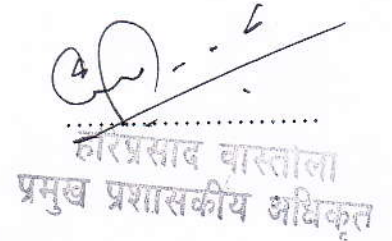 हरिप्रसाद वास्तोला
प्रमुख प्रशासकीय अधिकृत